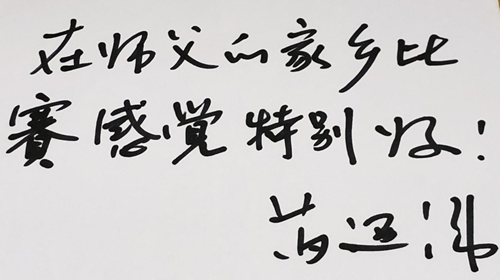 在师父的家乡比
賽感覺特别好！
芮迺伟